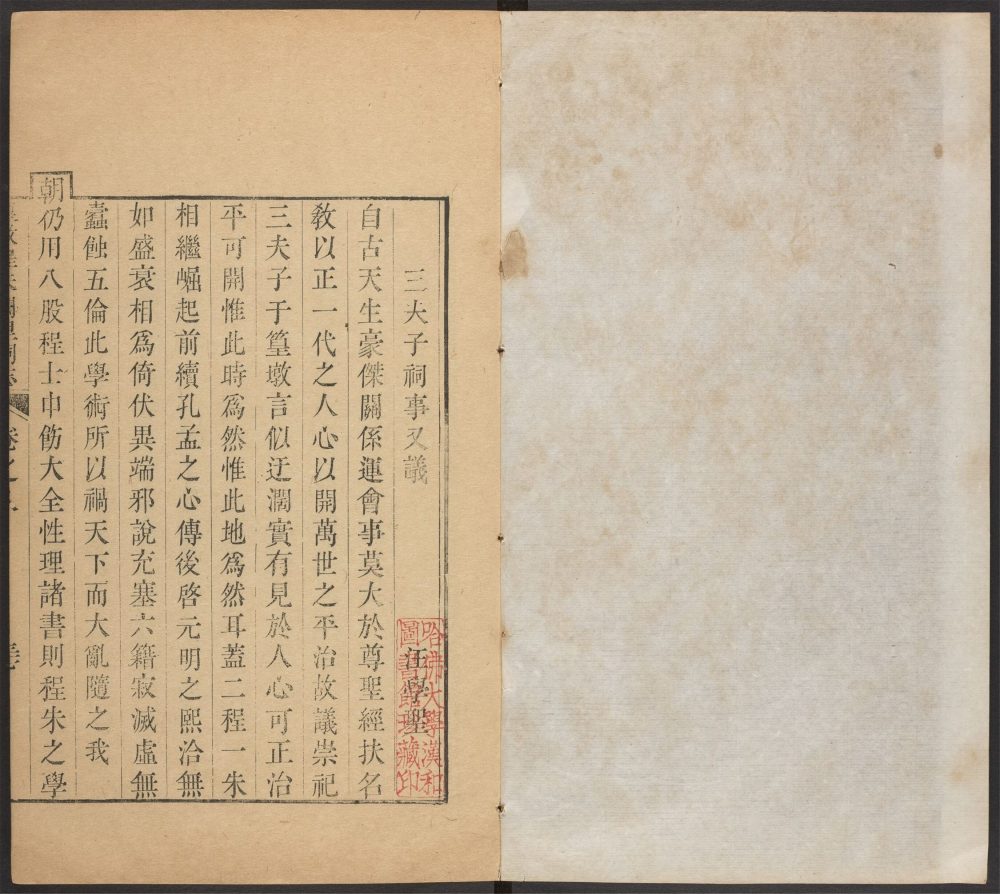 三夫子祠事又議
汪學聖
哈佛大學漢和
圖書館珍藏印
自古天生豪傑關係運會事莫大於尊聖經扶名
敎以正一代之人心以開萬世之平治故議崇祀
三夫子于篁墩言似迂濶實有見於人心可正治
平可開惟此時爲然惟此地爲然耳蓋二程一朱
相繼崛起前續孔孟之心傳後啓元明之熙洽無
如盛衰相爲倚伏異端邪說充塞六籍寂滅虛無
蠹蝕五倫此學術所以禍天下而大亂隨之我
朝仍用八股程士申飭大全性理諸書則程朱之學
程朱闕里祠志
卷之